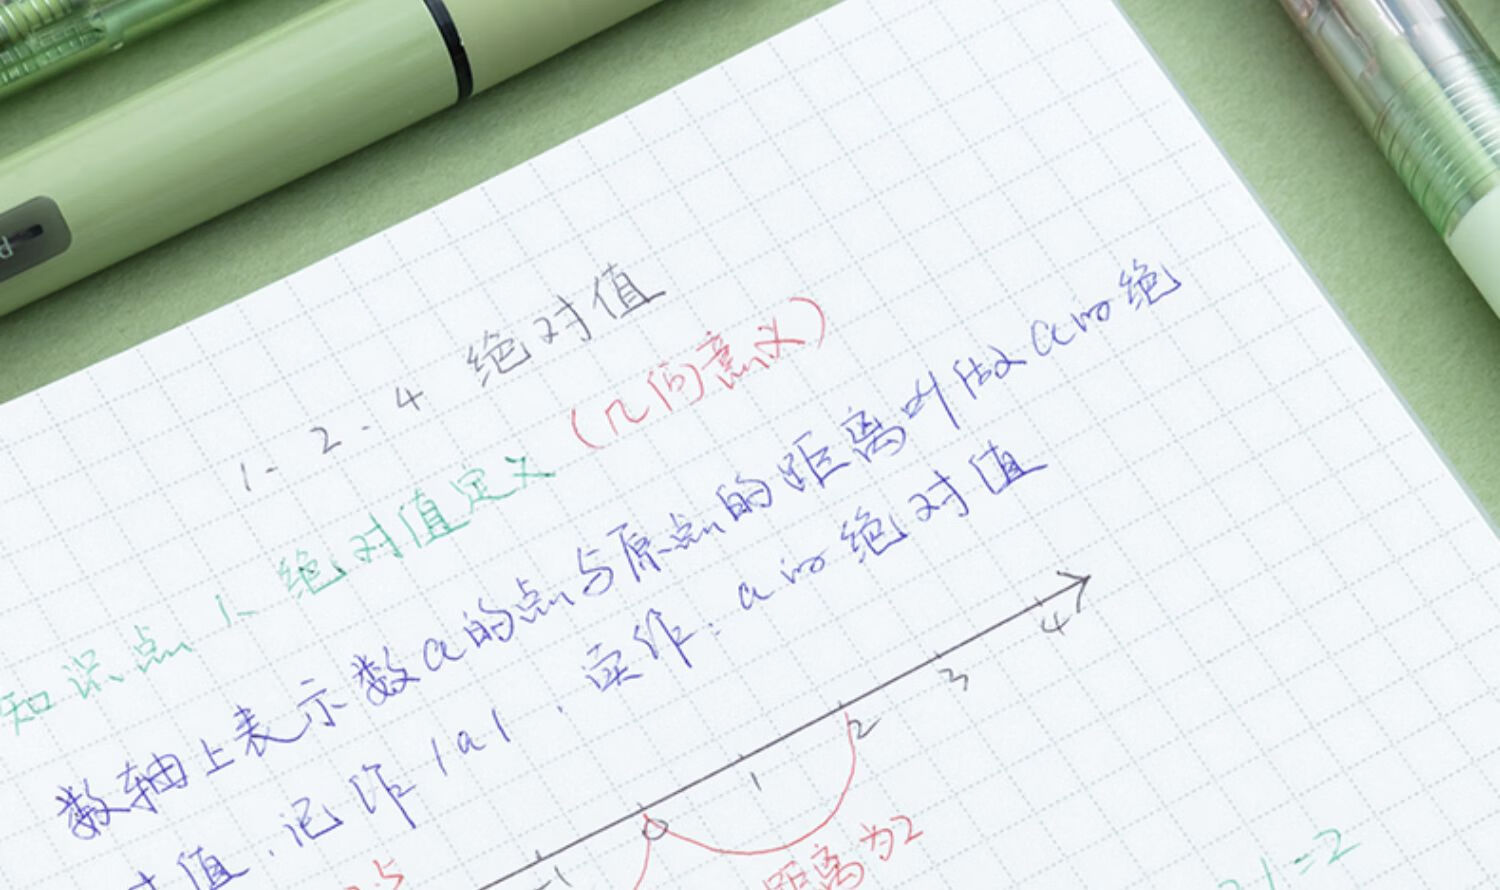 1.2.4 绝对值
知识点1、绝对值定义（几何意义）
数轴上表示数a的点与原点的距离叫做a的绝
对值.记作|a|.卖作:a的绝对值
-1 0 1 2 3 4
.5
距离为2
|=2